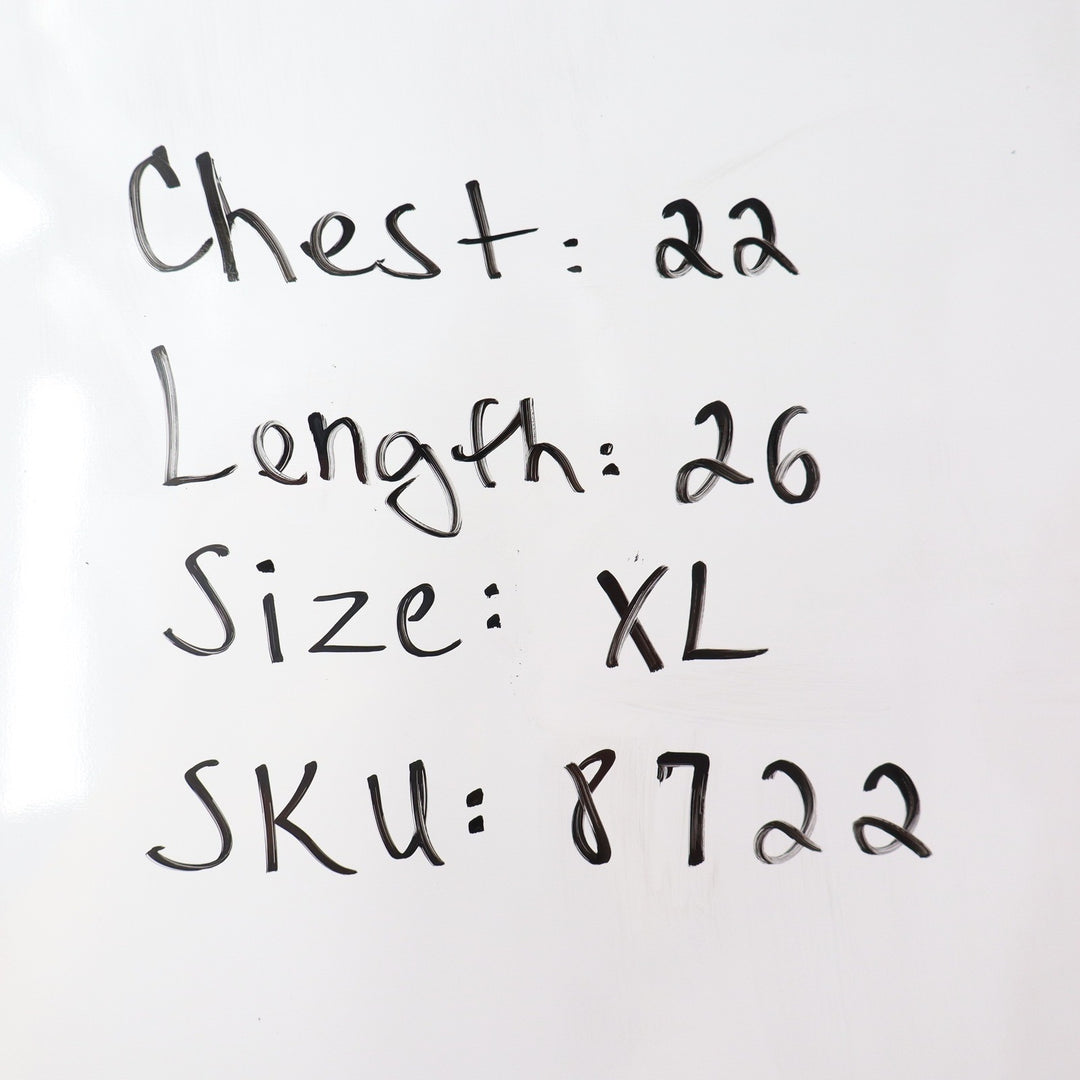 Chest: 22
Length: 26
Size: XL
SKU: 8722